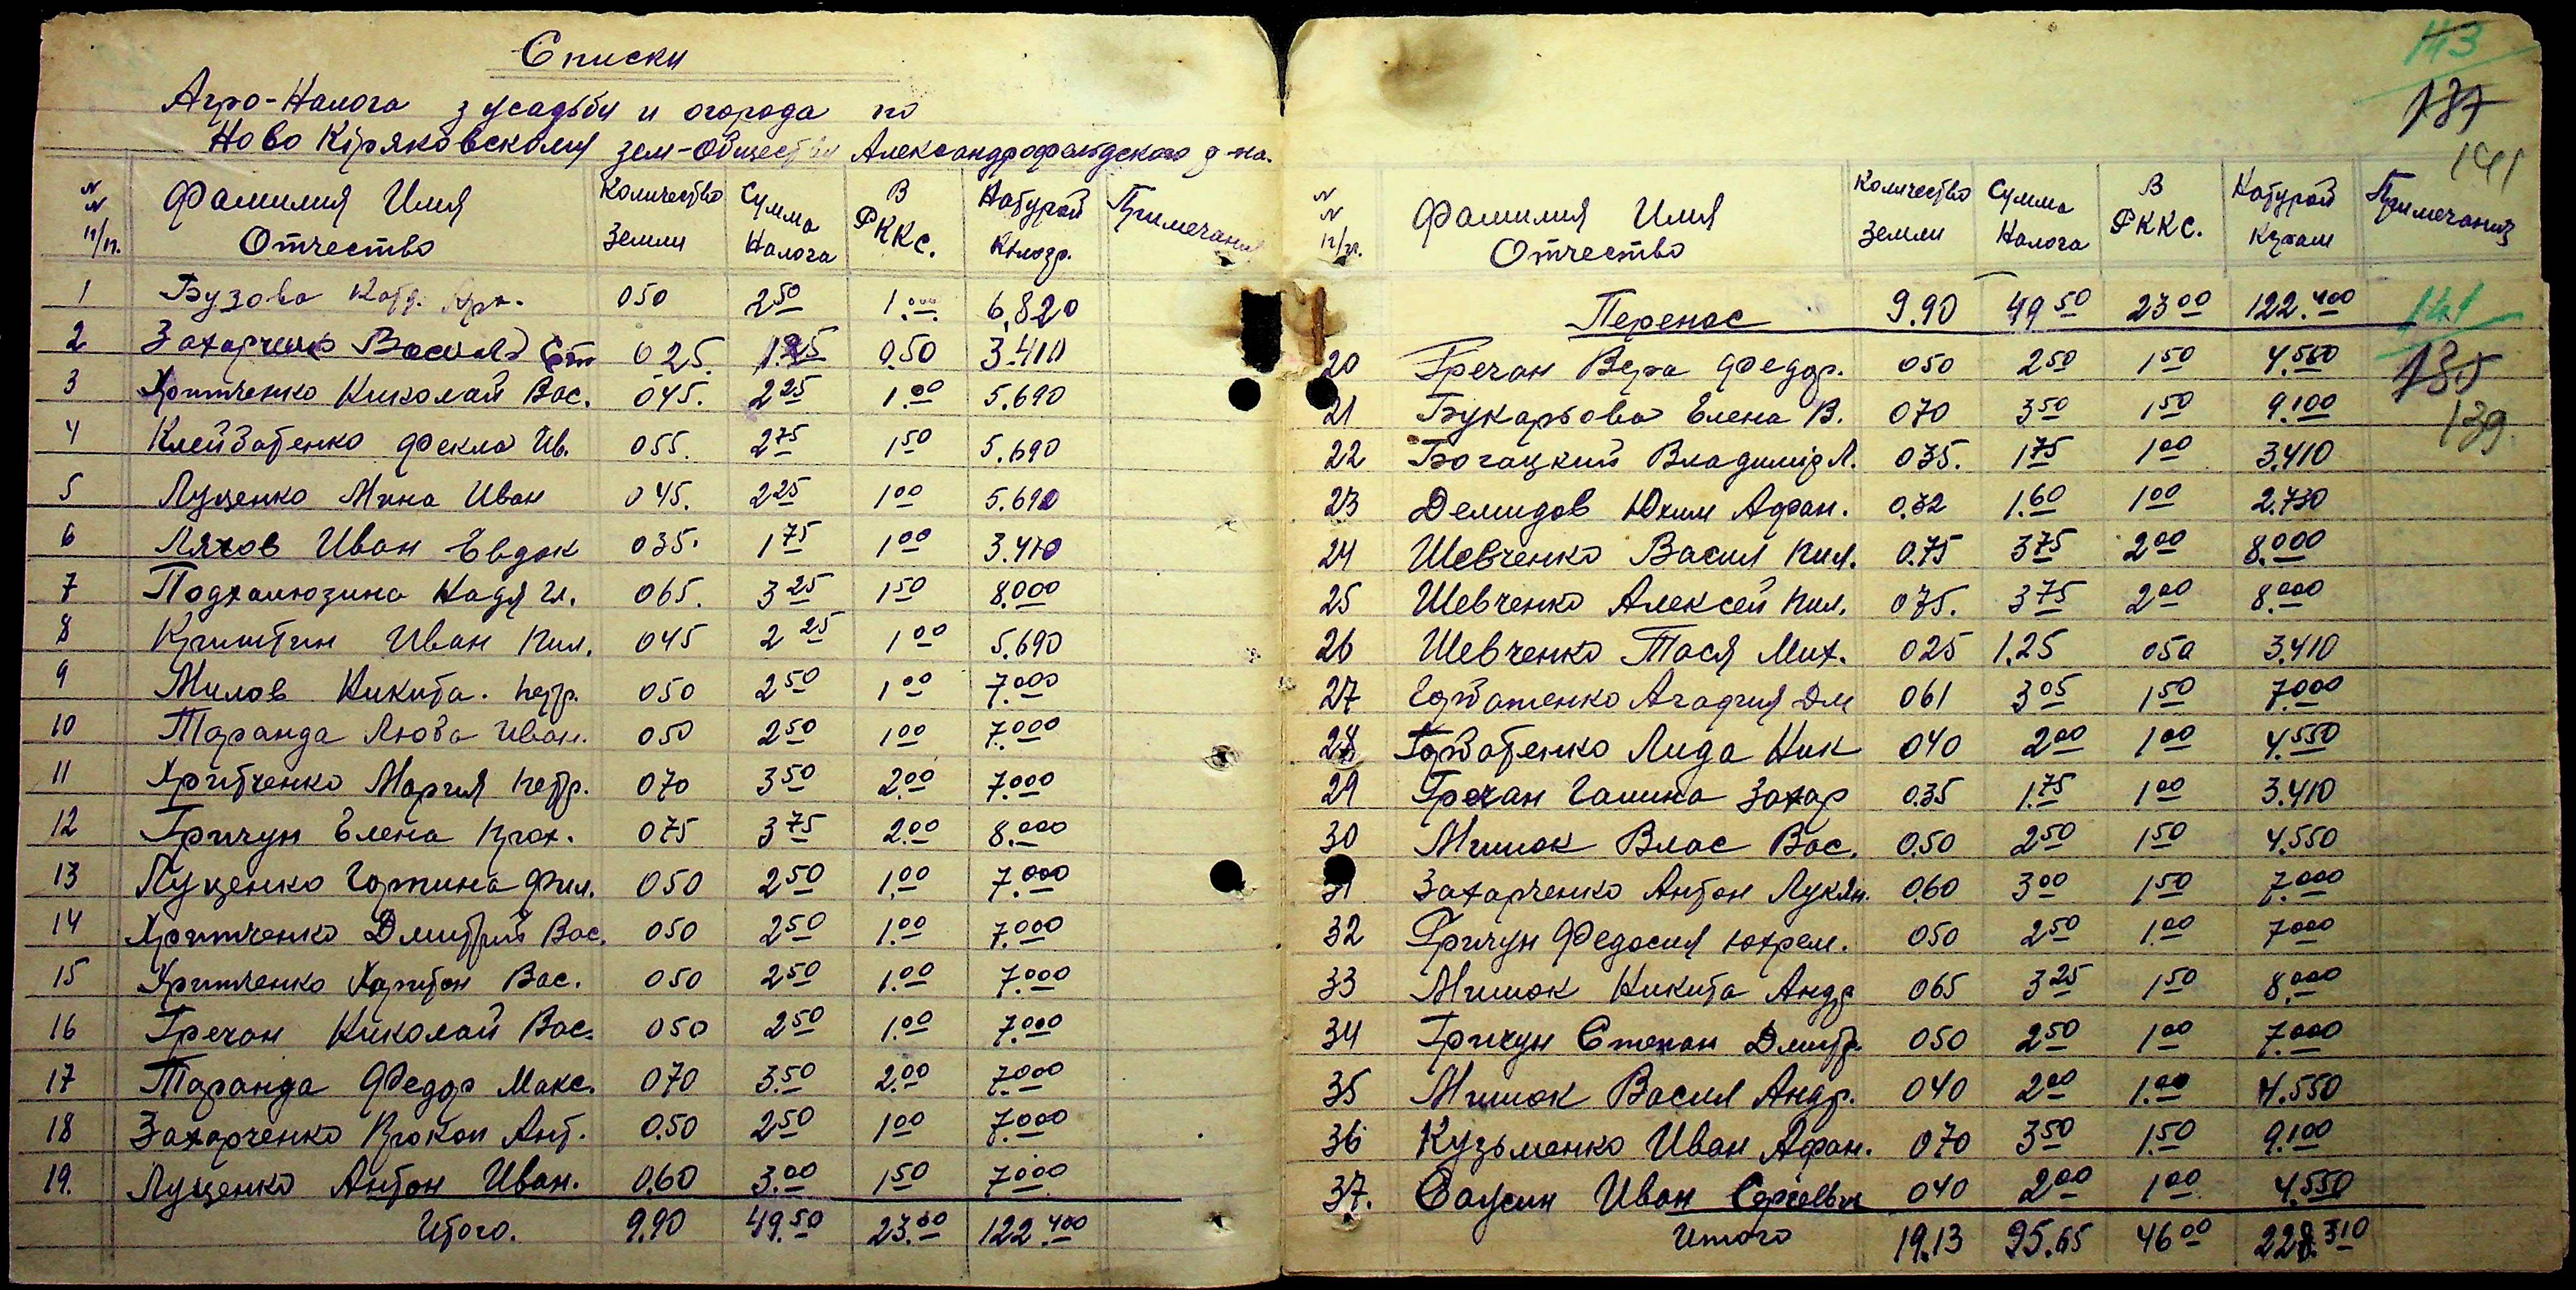 Списки
Агро-Налога з усадьбы и огорода по
Ново Кіряковскому зем-Обществу Александрофельдского р-на.
N N п/п. Фамилия Имя Отчество Количество Земли Сумма Налога В РККС. Натурой Килогр. Примечания
1 Бузова 050 2 50 1.00 6,820
2 Захарченко Василь Ст 025. 1.25 0.50 3.410
3 Хритченко Николай Вас. 045. 2 25 1.00 5.690
4 Клейватенко Фекла Ив. 055. 2 75 1 50 5.690
5 Луценко Мина Иван 045. 2 25 1 00 5.690
6 Ляхов Иван Евдок 035. 1 75 1 00 3.410
7 Подхалюзина Надя Ил. 065. 3 25 1 50 8.000
8 Криштин Иван Пил. 045 2 25 1 00 5.690
9 Милов Никита. Петр. 050 2 50 1 00 7.000
10 Таранда Люба Иван. 050 2 50 1 00 7.000
11 Хритченко Мария Петр. 070 3 50 2.00 7.000
12 Гричун Елена Прох. 075 3 75 2.00 8.000
13 Луценко Горпина Фил. 050 2 50 1.00 7.000
14 Хритченко Дмитрий Вас. 050 2 50 1.00 7.000
15 Хритченко Харитон Вас. 050 2 50 1.00 7.000
16 Гречан Николай Вас. 050 2 50 1.00 7.000
17 Таранда Федор Макс. 070 3.50 2.00 7.000
18 Захарченко Прокоп Ант. 0.50 2 50 1 00 7.000
19. Луценко Антон Иван. 0.60 3.00 1 50 7 000
Итого. 9.90 49.50 23.00 122.400
143
137
141
N N п/п. Фамилия Имя Отчество Количество Земли Сумма Налога В РККС. Натурой Примечания
Перенос 9.90 49 50 23 00 122.400
141
135
139
20 Гречан Вера Федор. 050 2 50 1 50 4.550
21 Букарьова Елена В. 070 3 50 1 50 9.100
22 Богацкий Владимір Л. 035. 1 75 1 00 3.410
23 Демидов Юхим Афан. 0.32 1.60 1 00 2.730
24 Шевченко Васил Пил. 0.75 3 75 2 00 8.000
25 Шевченко Алексей Пил. 075. 3 75 2 00 8.000
26 Шевченко Тася Мих. 025 1.25 050 3.410
27 Горватенко Агафия Дм 061 3 05 1 50 7.000
28 Горватенко Лида Ник 040 2 00 1 00 4.550
29 Гречан Галина Захар 0.35 1.75 1 00 3.410
30 Мишок Влас Вас. 0.50 2 50 1 50 4.550
31 Захарченко Антон Лукян. 0.60 3 00 1 50 7.000
32 Гричун Федосия Юхрем. 050 2 50 1.00 7 000
33 Мишок Никита Андр 065 3 25 1 50 8.000
34 Гричун Степан Дмитр. 050 2 50 1 00 7.000
35 Мишок Васил Андр. 040 2 00 1.00 4.550
36 Кузьменко Иван Афан. 070 3 50 1.50 9.100
37. Саусин Иван 040 2 00 1 00 4.550
Итого 19.13 95.65 46 00 228.310